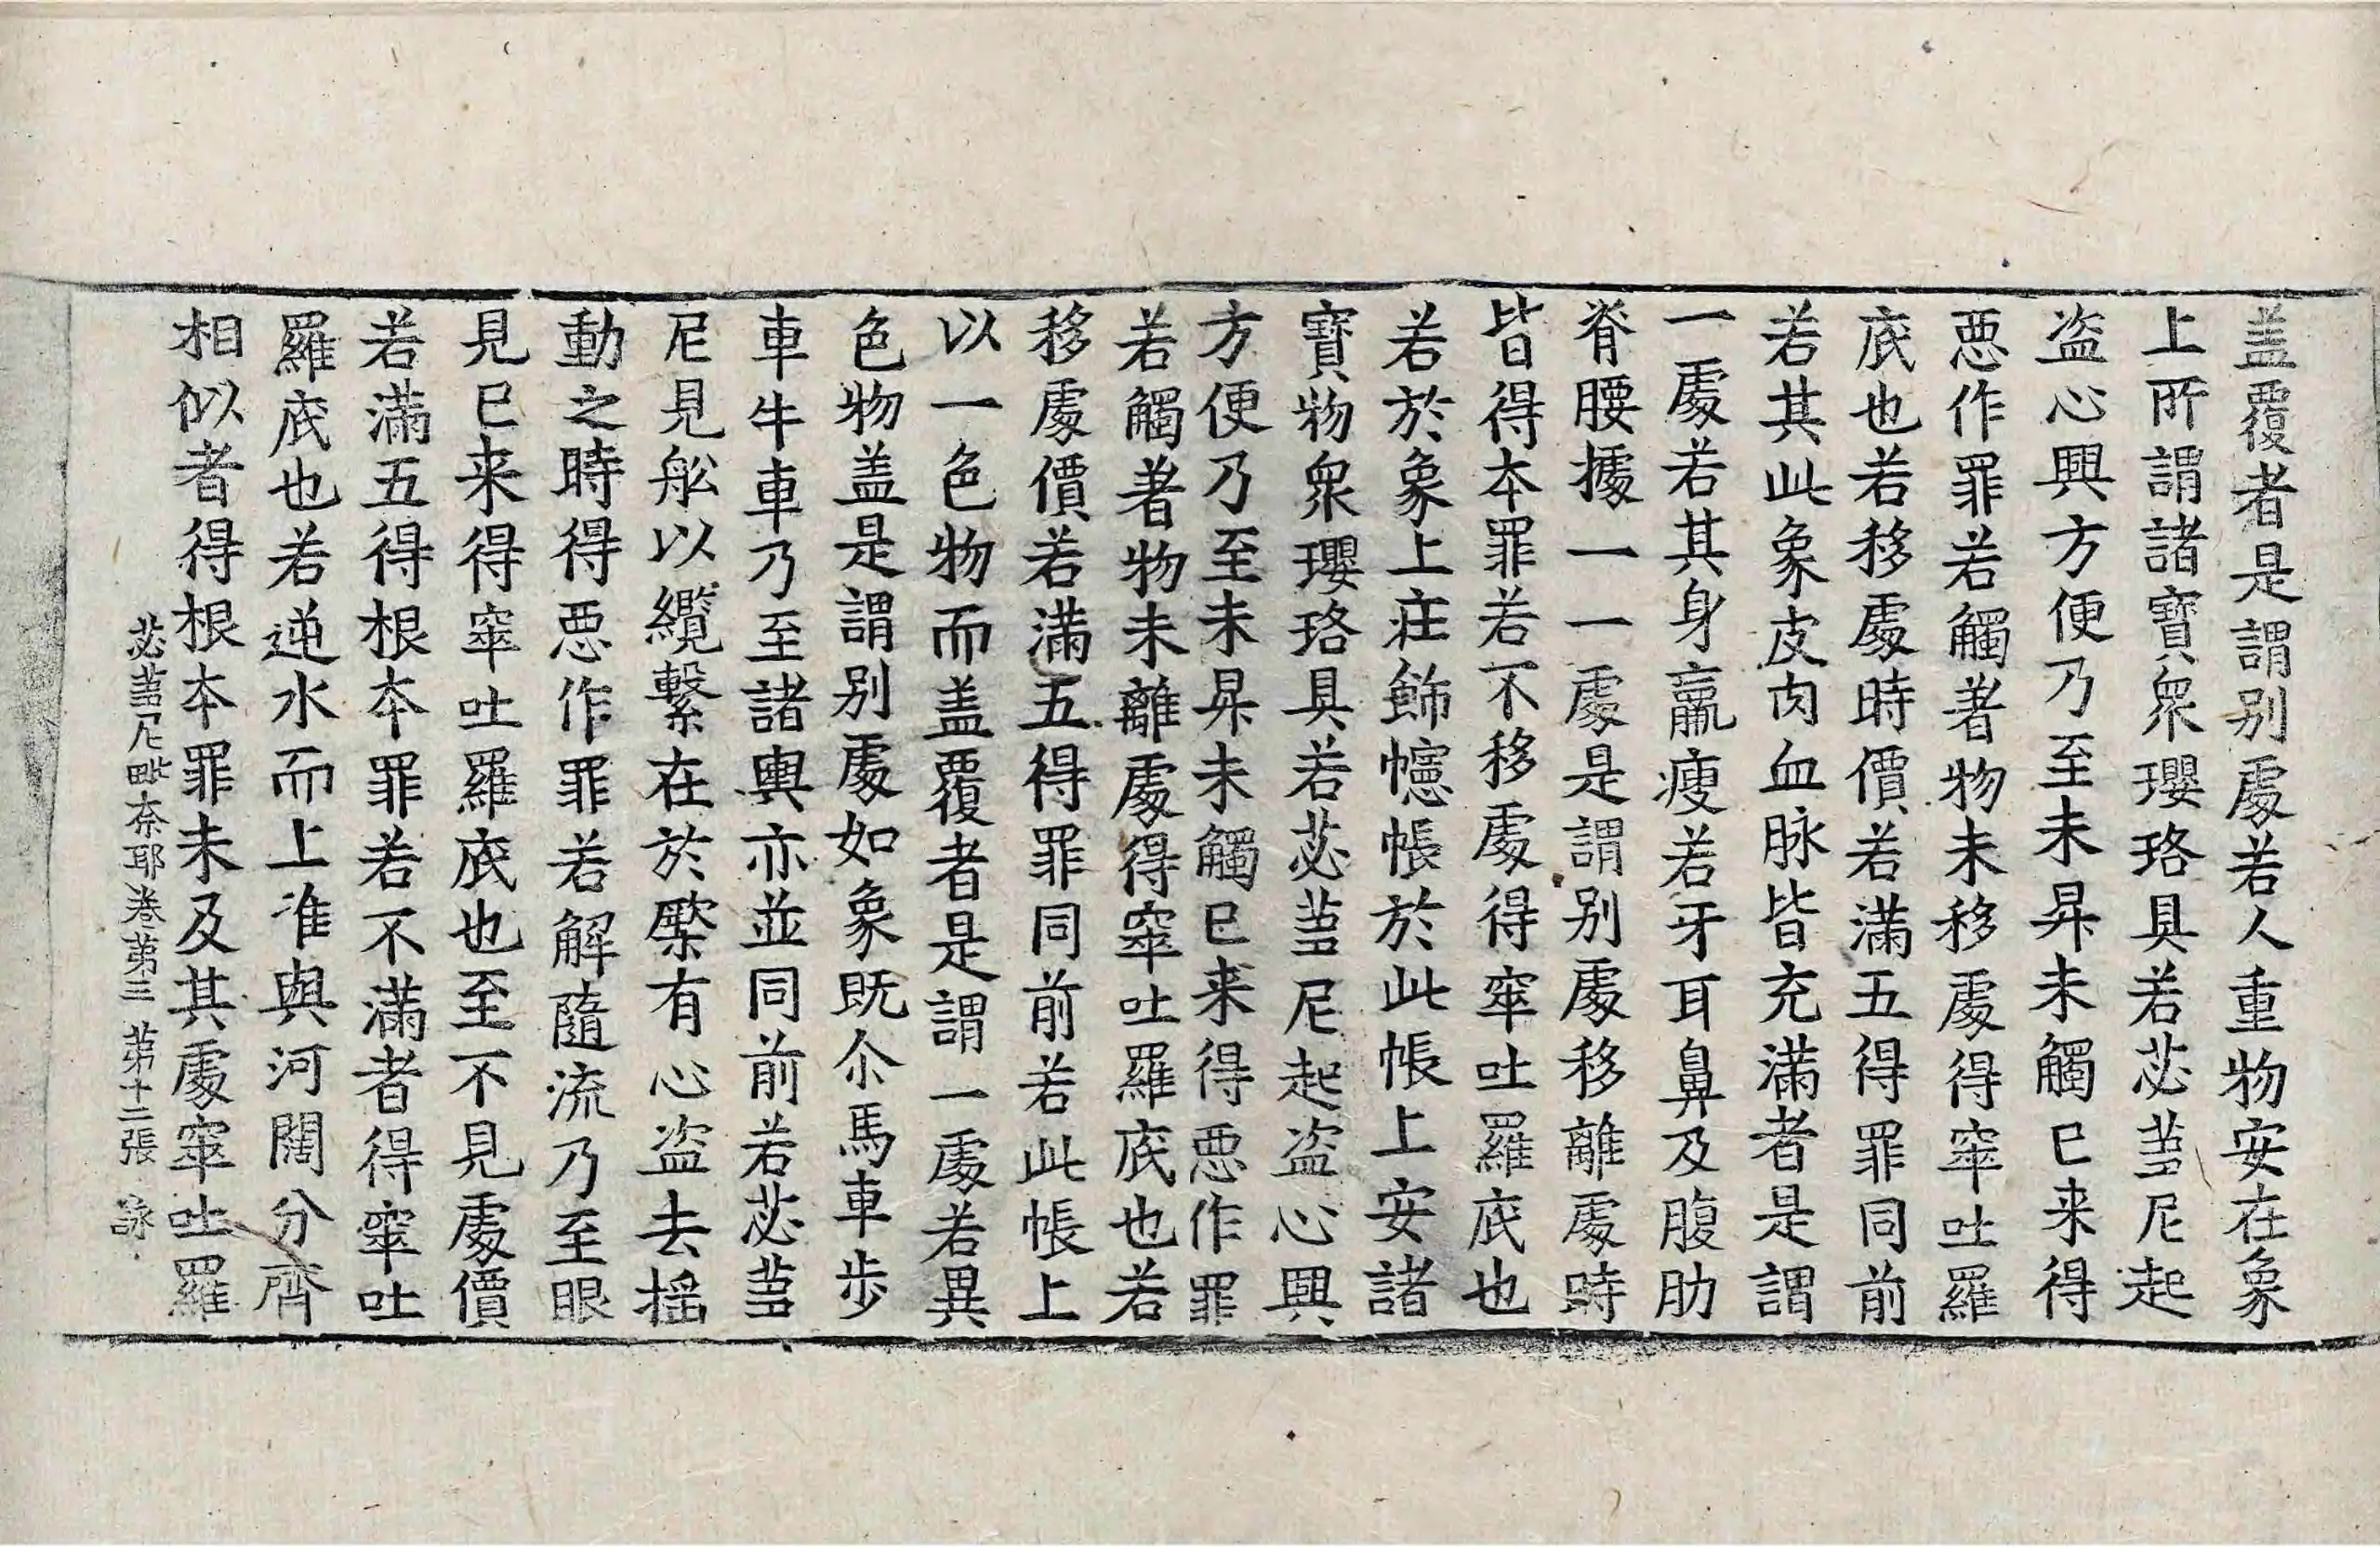 盖覆者是謂别處若人重物安在象
上所謂諸寶眾瓔珞具若苾蒭尼起
盗心興方便乃至未昇未觸已来得
惡作罪若觸著物未移處得窣吐羅
底也若移處時價若滿五得罪同前
若其此象皮肉血脉皆充滿者是謂
一處若其身羸瘦若牙耳鼻及腹肋
脊腰據一一處是謂别處移離處時
皆得本罪若不移處得窣吐羅底也
若於象上莊飾幰帳於此帳上安諸
寶物眾瓔珞具若苾蒭尼起盗心興
方便乃至未昇未觸已来得惡作罪
若觸著物未離處得窣吐羅底也若
移處價若滿五得罪同前若此帳上
以一色物而盖覆者是謂一處若異
色物盖是謂别處如象既尒馬車步
車牛車乃至諸輿亦並同前若苾蒭
尼見舩以纜繫在於橜有心盗去摇
動之時得惡作罪若解隨流乃至眼
見已来得窣吐羅底也至不見處價
若滿五得根本罪若不滿者得窣吐
羅底也若逆水而上准與河闊分齊
相似者得根本罪未及其處窣吐羅
苾蒭尼毗奈耶卷第三 第十二張 詠